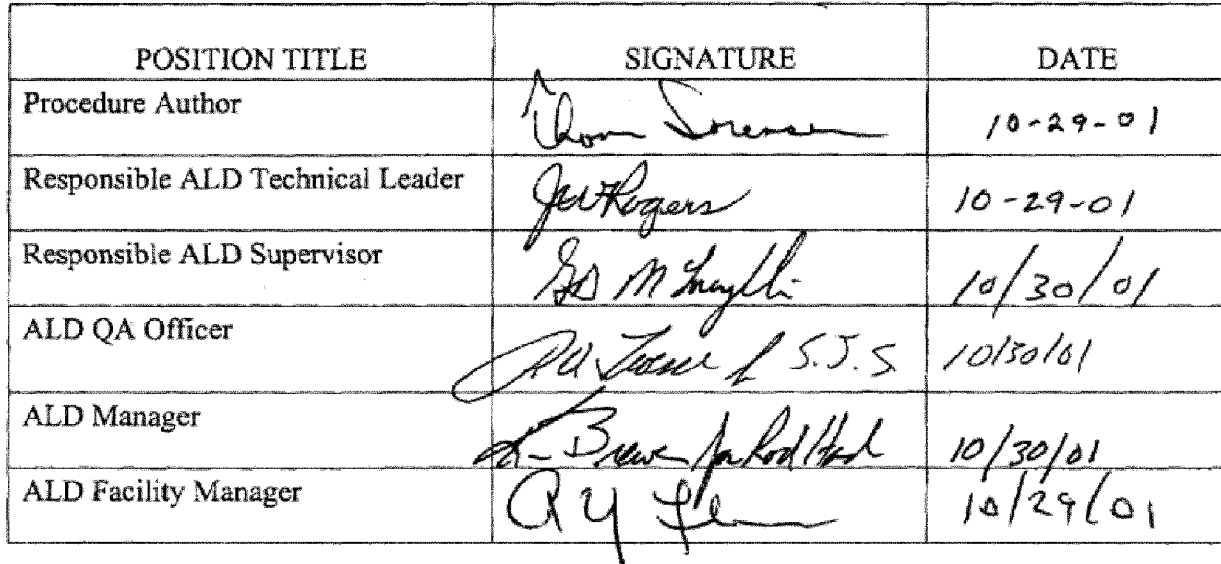 POSITION TITLE SIGNATURE DATE
Procedure Author Thom Sorensen 10-29-01
Responsible ALD Technical Leader JW Rogers 10-29-01
Responsible ALD Supervisor 10/30/01
ALD QA Officer S.J.S 10/30/01
ALD Manager Brewer for Rod Hand 10/30/01
ALD Facility Manager 10/29/01